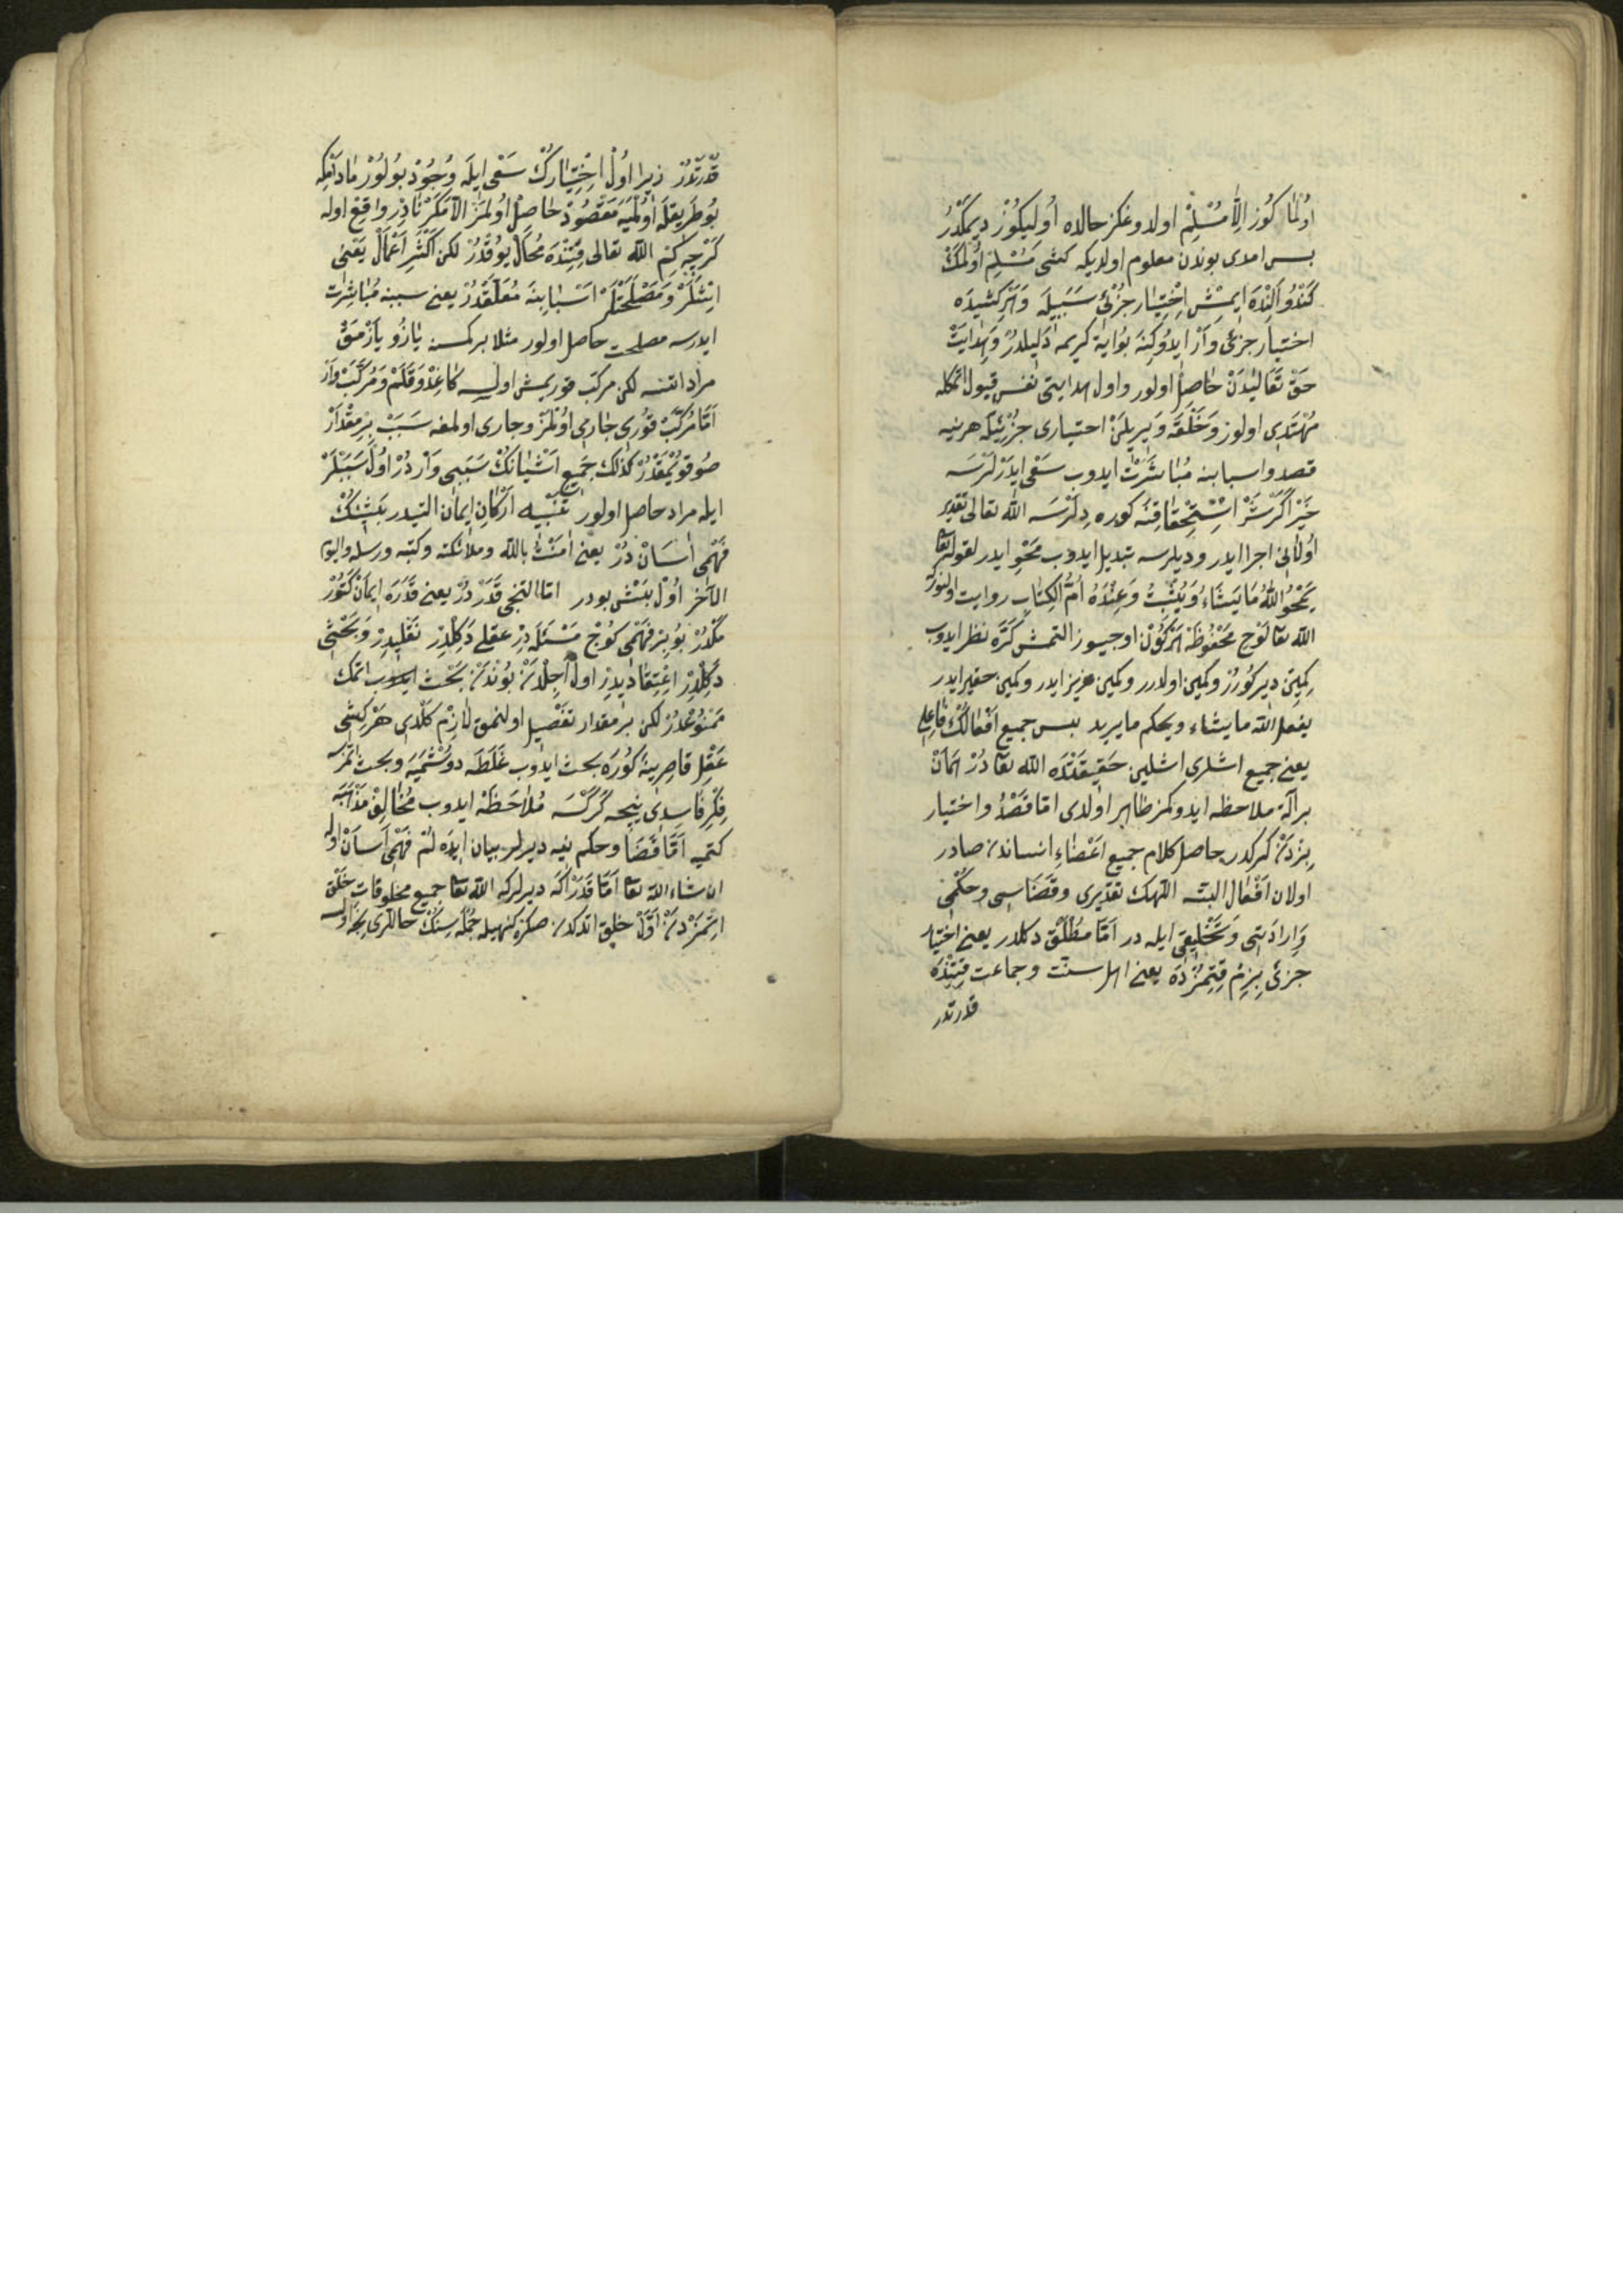 اُولْمَا كُوز اِلَّا مُسْلِمْ اولدوغكز حالده اُولیكُوزْ دیمكْدُرْ
بس امدی بوندن معلوم اولدیكه كشی مُسْلِم اُولْمَكْ
كَنْدُو اَلِنْدَه ایمِشْ اِخْتِیَار جُزْئی سَبَبِیلَه وَهَرْ كِشِیدَه
اختیار جزئی وَاَرْ ایدُوكِنَه بُوایَة كریمه دَلِیلدُرْ وَهِدَایَتْ
حَقْ تَعَالیدَنْ حَاصِل اولور واول هدایتی نفس قبول اتمكله
مُهْتَدِی اولوز وَخَلْقَه وَیرِیلَنْ اختیاری جُزْئِیلَه هرنیه
قصد واسبابنه مُبَاشَرَتْ ایدوب سَعْی ایدَرْلَرْسَه
خَیْر اكَرْ شَرْ اِسْتِحْقَاقِنَه كوره دِلَرْسَه الله تعالی تَقْدِیر
اُولَانِی اجرا ایدر ودیلرسه تبدیل ایدوب مَحْو ایدر لقوله تعا
یَمْحُو اللّٰهُ مَا یَشَاءُ وَیُثْبِتُ وَعِنْدَهُ اُمُّ الْكِتَابِ روایت اولنور
الله تعا لَوْحِ مَحْفُوظَه هَرْكُونْ اوجیوز التمش كَرَّه نظر ایدوب
كِمِینْ دیركُورُرْ وكمین اولدرر وكمین عزیز ایدر وكمین حقیر ایدر
یفعل الله ما یشاء ویحكم ما یرید بس جمیع اَفْعَالكْ فَاعِلِی
یعنی جمیع اشلری اشلین حَقِیقَتْدَه الله تعا دُرْ هَمَانْ
بر آلة ملاحظه ایدوكمز ظاهر اولدی اما قَصْدْ واختیار
بِزدَنْ كركدر حاصل كلام جمیع اَعْضَاءِ انساندن صادر
اولان اَفْعَال البته اللهك تقدیری وقَضَاسِی وحُكْمِی
وَاِرَادَتِی وَتَخْلِیقِی ایله در اَمَّا مُطْلَقْ دكلدر یعنی اختیار
جزئی بِزِمْ قِتِمُزْدَه یعنی اهل سنت وجماعت قِتِنْدَه
قدرتدر
قُدْرَتْدُرْ زیرا اُولْ اِخْتِیَارِكْ سَعْی ایلَه وُجُودْ بُولُورْ مَادَامْكِه
بُوطَرِیقْلَه اُولْمَیَه مَقْصُودْ حَاصِلْ اُولْمَزْ الَّا مَكَرْ نَادِرْ واقِعْ اوله
كَرْچِه كِمْ الله تعالی قِتِنْدَه مُحَالْ یُوقْدُرْ لكن اَكْثَرِ اَعْمَالْ یَعْنِی
اِیشْلَرْ وَمَصْلَحَتْلَرْ اَسْبَابِنَه مُعَلَّقْدُرْ یعنی سببنه مُبَاشِرَت
ایدرسه مصلحت حاصل اولور مثلا بر كمسنه یَازُو یَازْمَقْ
مراد اتسه لكن مركب قوریمش اولسه كَاغِدْ وَقَلَمْ وَمُرَكَّبْ وَارْ
اَمَّا مُرَكَّبْ قوری جَارِی اُولْمَزْ وجاری اولمغه سَبَبْ بِرْمِقْدَارْ
صُوقُویُمَقْدُرْ كذلك جَمِیعِ اَشْیَانِكْ سَبَبِی وَاَرْ دُرْ اُولْ سَبَبْلَرْ
ایله مراد حاصل اولور تَنْبِیه اَرْكَانِ ایمان التیدر بَشِنِكْ
فَهْمِی اٰسَانْ دُرْ یعنی اٰمَنْتُ بالله وملائكته وكتبه ورسله والیوم
الاٰخر اُولْ بَشْ بودر امّا التنجی قَدَرْ دُرْ یعنی قَدَرَه ایمان كَتُورْ
مَكْدُرْ بُو بِرْ فَهْمِی كُوجْ مَسْئَلَه دِرْ عقلی دَكِلْدِرْ نَقْلِیدِرْ وَبَحْثِی
دَكِلْدِرْ اِعْتِقَادِیدِرْ اول اَجِلْدَنْ بُونْدَنْ بَحْث ایدوب اتمك
مَمْنُوعْدُرْ لكن بر مقدار تَفْصِیل اولنمق لَازِمْ كلدی هَرْكِشِی
عَقْلِ قَاصِرِینَه كُورَه بحث ایدوب غَلَطَه دوشْمَیَه وبحث اتمزسه
فِكْرِ فَاسِدِی نیجه كَرْكْسَه مُلَاحَظَه ایدوب مُخَالِفْ مَذْهَبَه
كتمیه اَمَّا قَضَا وحكم نیه دیرلر بیان ایدَه لُمْ فَهْمِی اٰسَانْ اوله
ان شاء الله تعا اَمَّا قَدَرْ اكَه دیرلركه الله تعا جمیع مخلوقات خَلْق
اِتْمَزْدَنْ اَوَّلْ خلق اتدكدن صكره كنهیله جُمْلَه سِنِكْ حاللری نیجه اولسه